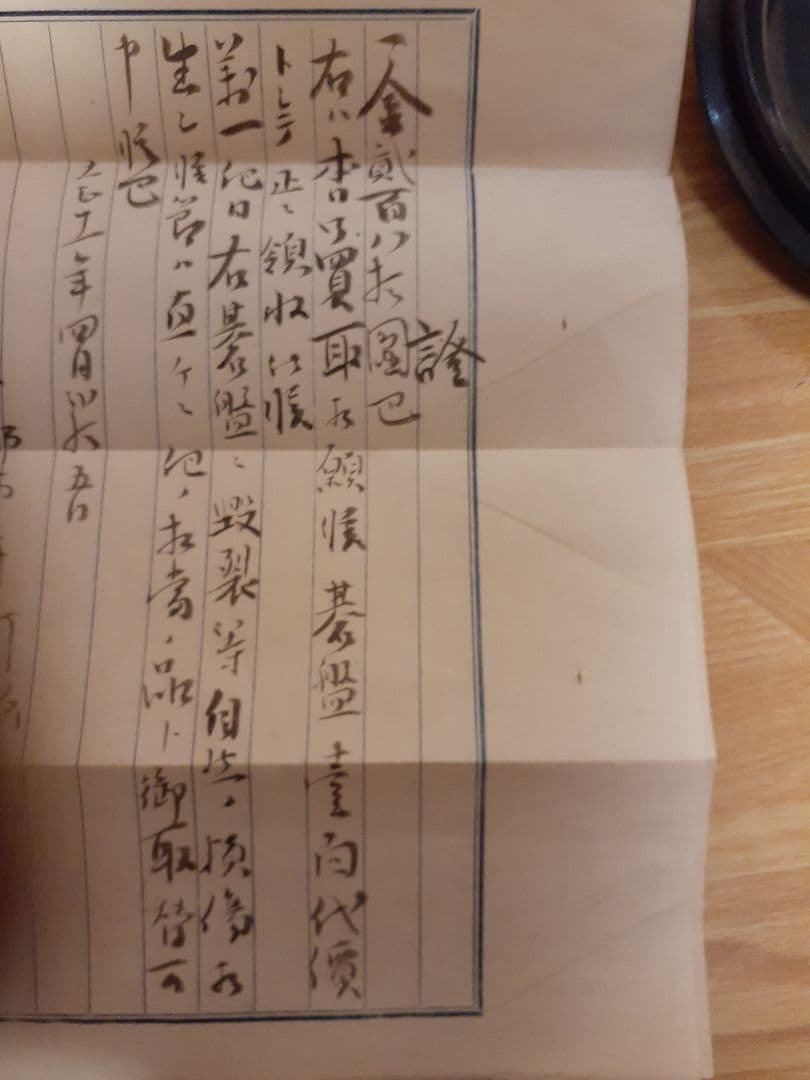 證
一金貳百八拾圓也
右ハ本日御買取相願候碁盤壹面代價
トシテ正ニ領收仕候
萬一他日右碁盤ニ毀裂等自然ノ損傷相
生シ候節ハ直チニ他ノ相當ノ品ト御取替可
申候也
年四月廿五日